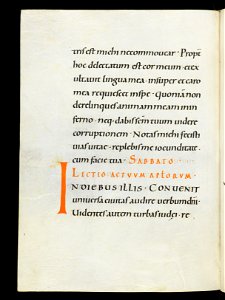 tris est michi ne commovear · Propt
hoc delectatum est cor meum · et ex
ultavit lingua mea · insuper et caro
mea requiescet in spe · Quoniam non
derelinques animam meam in in
ferno · neq; dabis scm tuum videre
corruptionem · Notas michi fecisti
vias vitae · replebis me iocunditate ·
cum facie tua · SABBATO
LECTIO ACTUUM APTORUM ·
IN DIEBUS ILLIS · CONVENIT
universa civitas audire verbum dni ·
Videntes autem turbas iudei · re